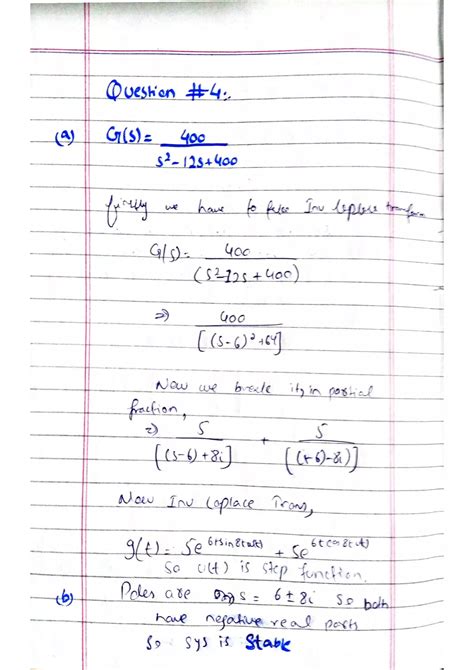 Question #4:.
(a) G(s) = 400
s²-12s+400
firstly we have to take Inv laplace transform
G(s) = 400
(s²-12s + 400)
⇒ 400
[(s-6)²+64]
Now we break it, in partial
fraction,
⇒ 5 + 5
[(s-6)+8i] [(s-6)-8i)]
Now Inv Laplace Trans,
g(t) = 5e + 5e
So u(t) is step function.
(b) Poles are s = 6 ± 8i so both
have negative real parts
So sys is Stable